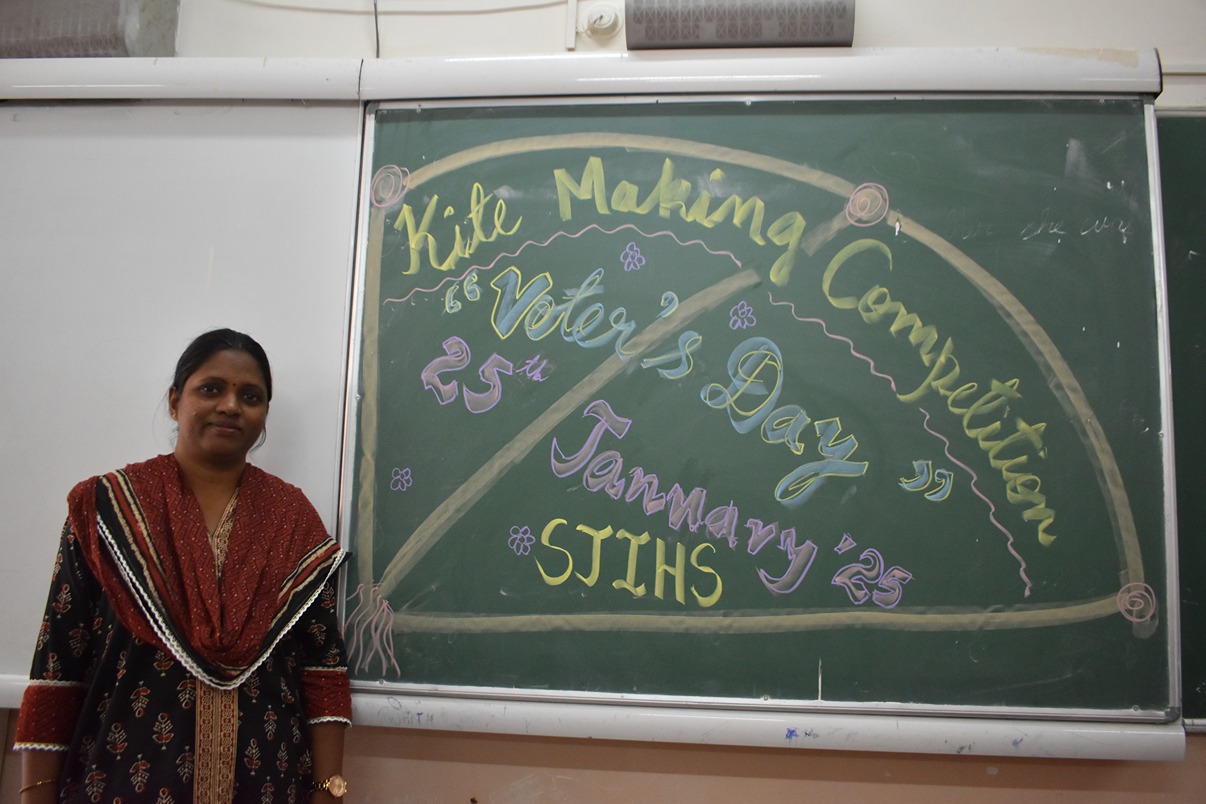 Kite Making Competition
“Voter's Day”
25th January '25
SJIHS